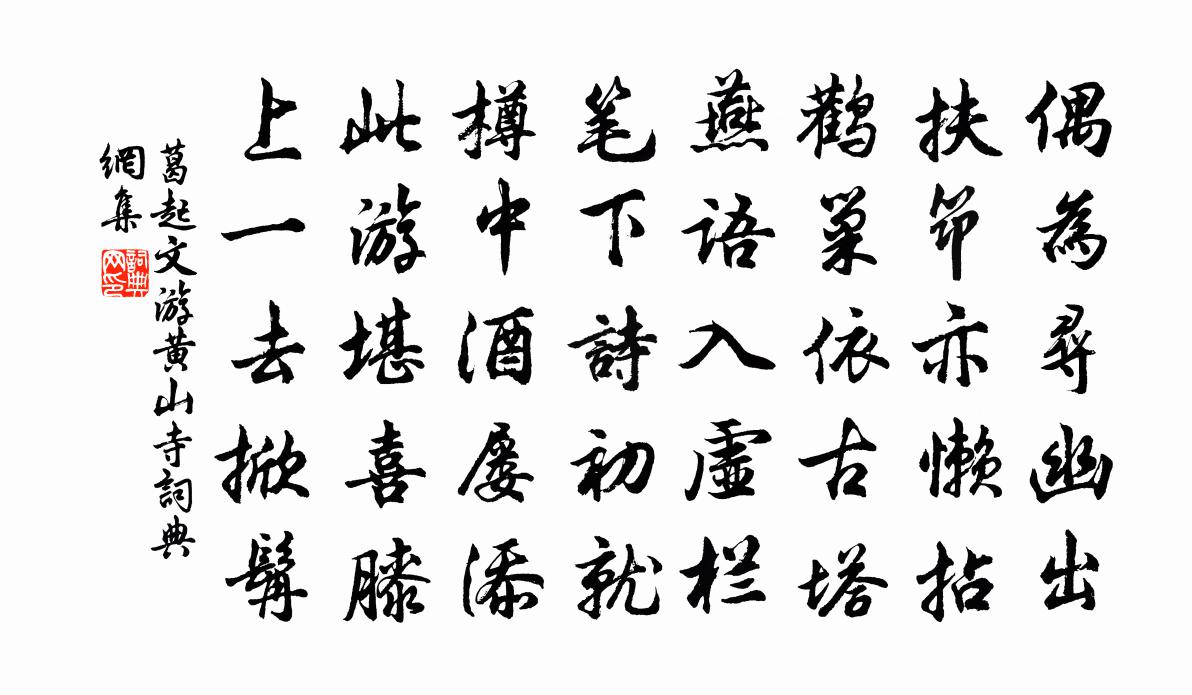 偶為尋幽出
扶筇亦懒拈
鹳巢依古塔
燕语入虛栏
笔下詩初就
樽中酒屡添
此游堪喜膝
上一去掀髯
葛起文游黄山寺詞典
網集
詞典
网印